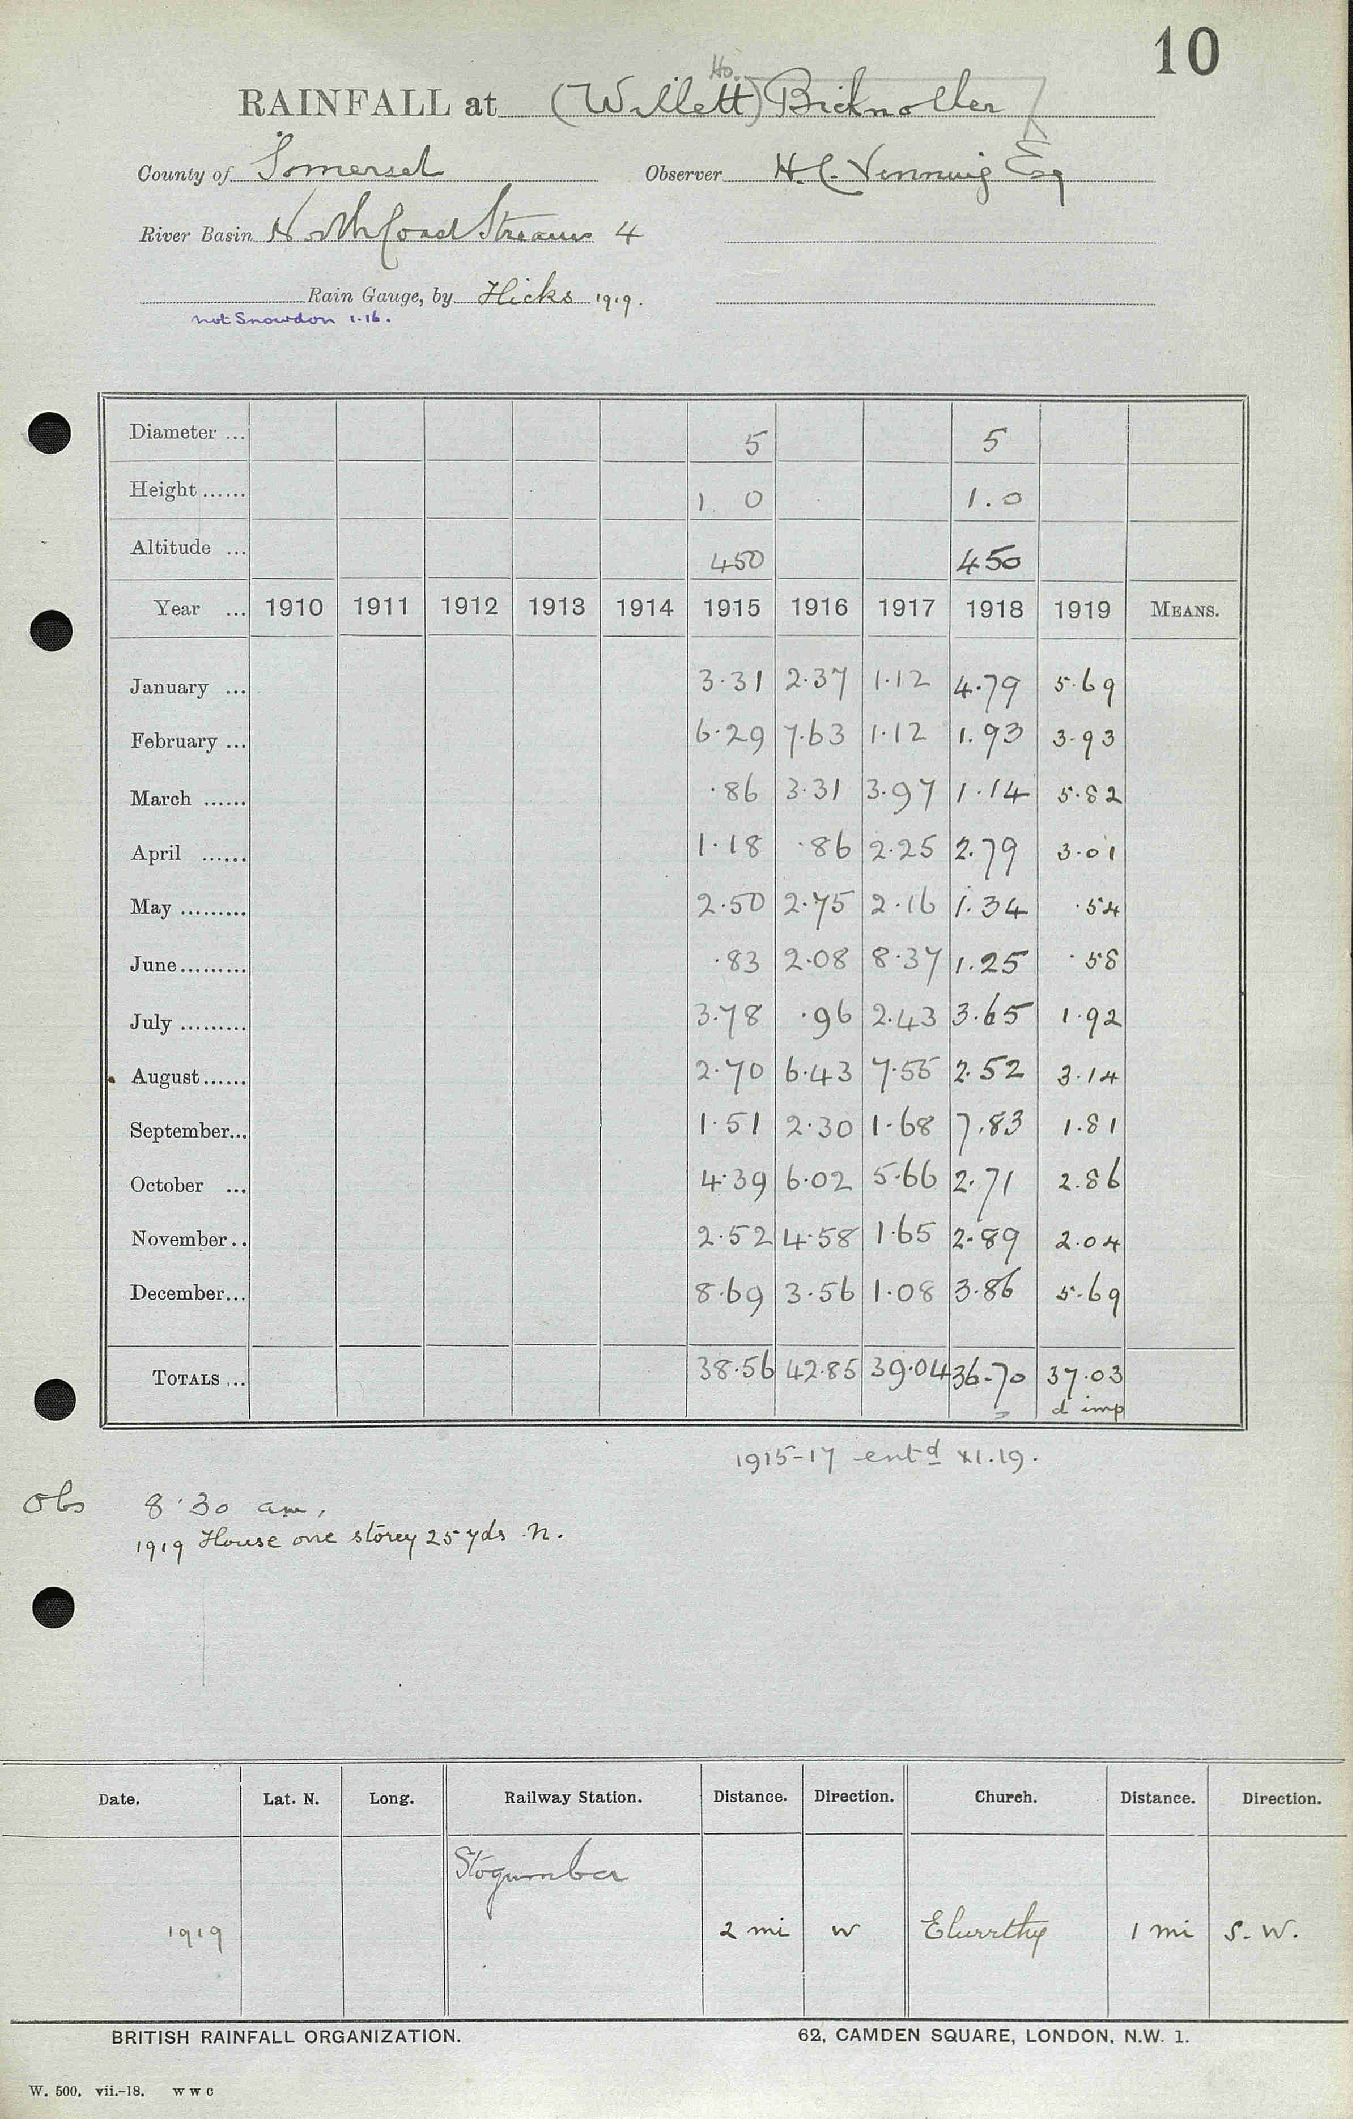 10
Ho.
RAINFALL at (Willett) Bicknoller
County of Somerset Observer H. C. Venning Esq
River Basin North Coast Streams 4
Rain Gauge, by Hicks 1919.
not Snowdon 1.16.
Diameter ... 5 5
Height ...... 1 0 1.0
Altitude ... 450 450
Year ... 1910 1911 1912 1913 1914 1915 1916 1917 1918 1919 MEANS.
January ... 3.31 2.37 1.12 4.79 5.69
February ... 6.29 7.63 1.12 1.93 3.93
March ...... .86 3.31 3.97 1.14 5.82
April ...... 1.18 .86 2.25 2.79 3.01
May ......... 2.50 2.75 2.16 1.34 .54
June......... .83 2.08 8.37 1.25 .58
July ......... 3.78 .96 2.43 3.65 1.92
August...... 2.70 6.43 7.55 2.52 3.14
September... 1.51 2.30 1.68 7.83 1.81
October ... 4.39 6.02 5.66 2.71 2.86
November.. 2.52 4.58 1.65 2.89 2.04
December... 8.69 3.56 1.08 3.86 5.69
TOTALS ... 38.56 42.85 39.04 36.70 37.03
d imp
1915-17 entd XI.19.
Obs 8.30 am.
1919 House one storey 25 yds N.
Date. Lat. N. Long. Railway Station. Distance. Direction. Church. Distance. Direction.
Stogumber
1919 2 mi W Elworthy 1 mi S. W.
BRITISH RAINFALL ORGANIZATION. 62, CAMDEN SQUARE, LONDON, N.W. 1.
W. 500. vii.-18. W W C